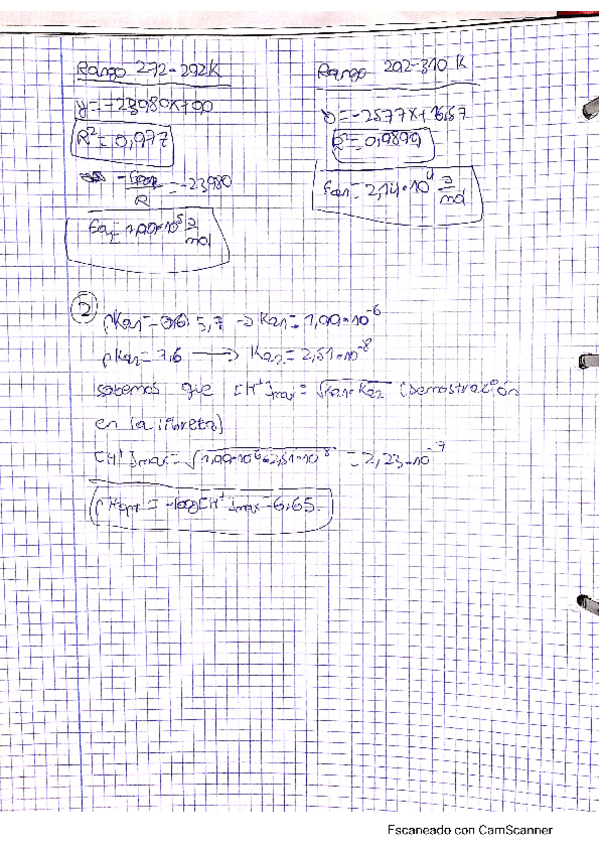 Rango 272-292K
y=-23980x+90
R²=0,977
-Ea2/R = -23980
Ea2=1,99·10⁵ J/mol
Rango 292-310 K
y=-2577x+16,67
R²=0,9899
Ea1=2,14·10⁴ J/mol
2
pKa1= 5,7 → Ka1=1,99·10⁻⁶
pKa2=7,6 → Ka2=2,51·10⁻⁸
sabemos que [H⁺]max=√Ka1·Ka2 (demostración
en la libreta)
[H⁺]max=√1,99·10⁻⁶·2,51·10⁻⁸ = 2,23·10⁻⁷
pHopt = -log[H⁺]max=6,65
Escaneado con CamScanner